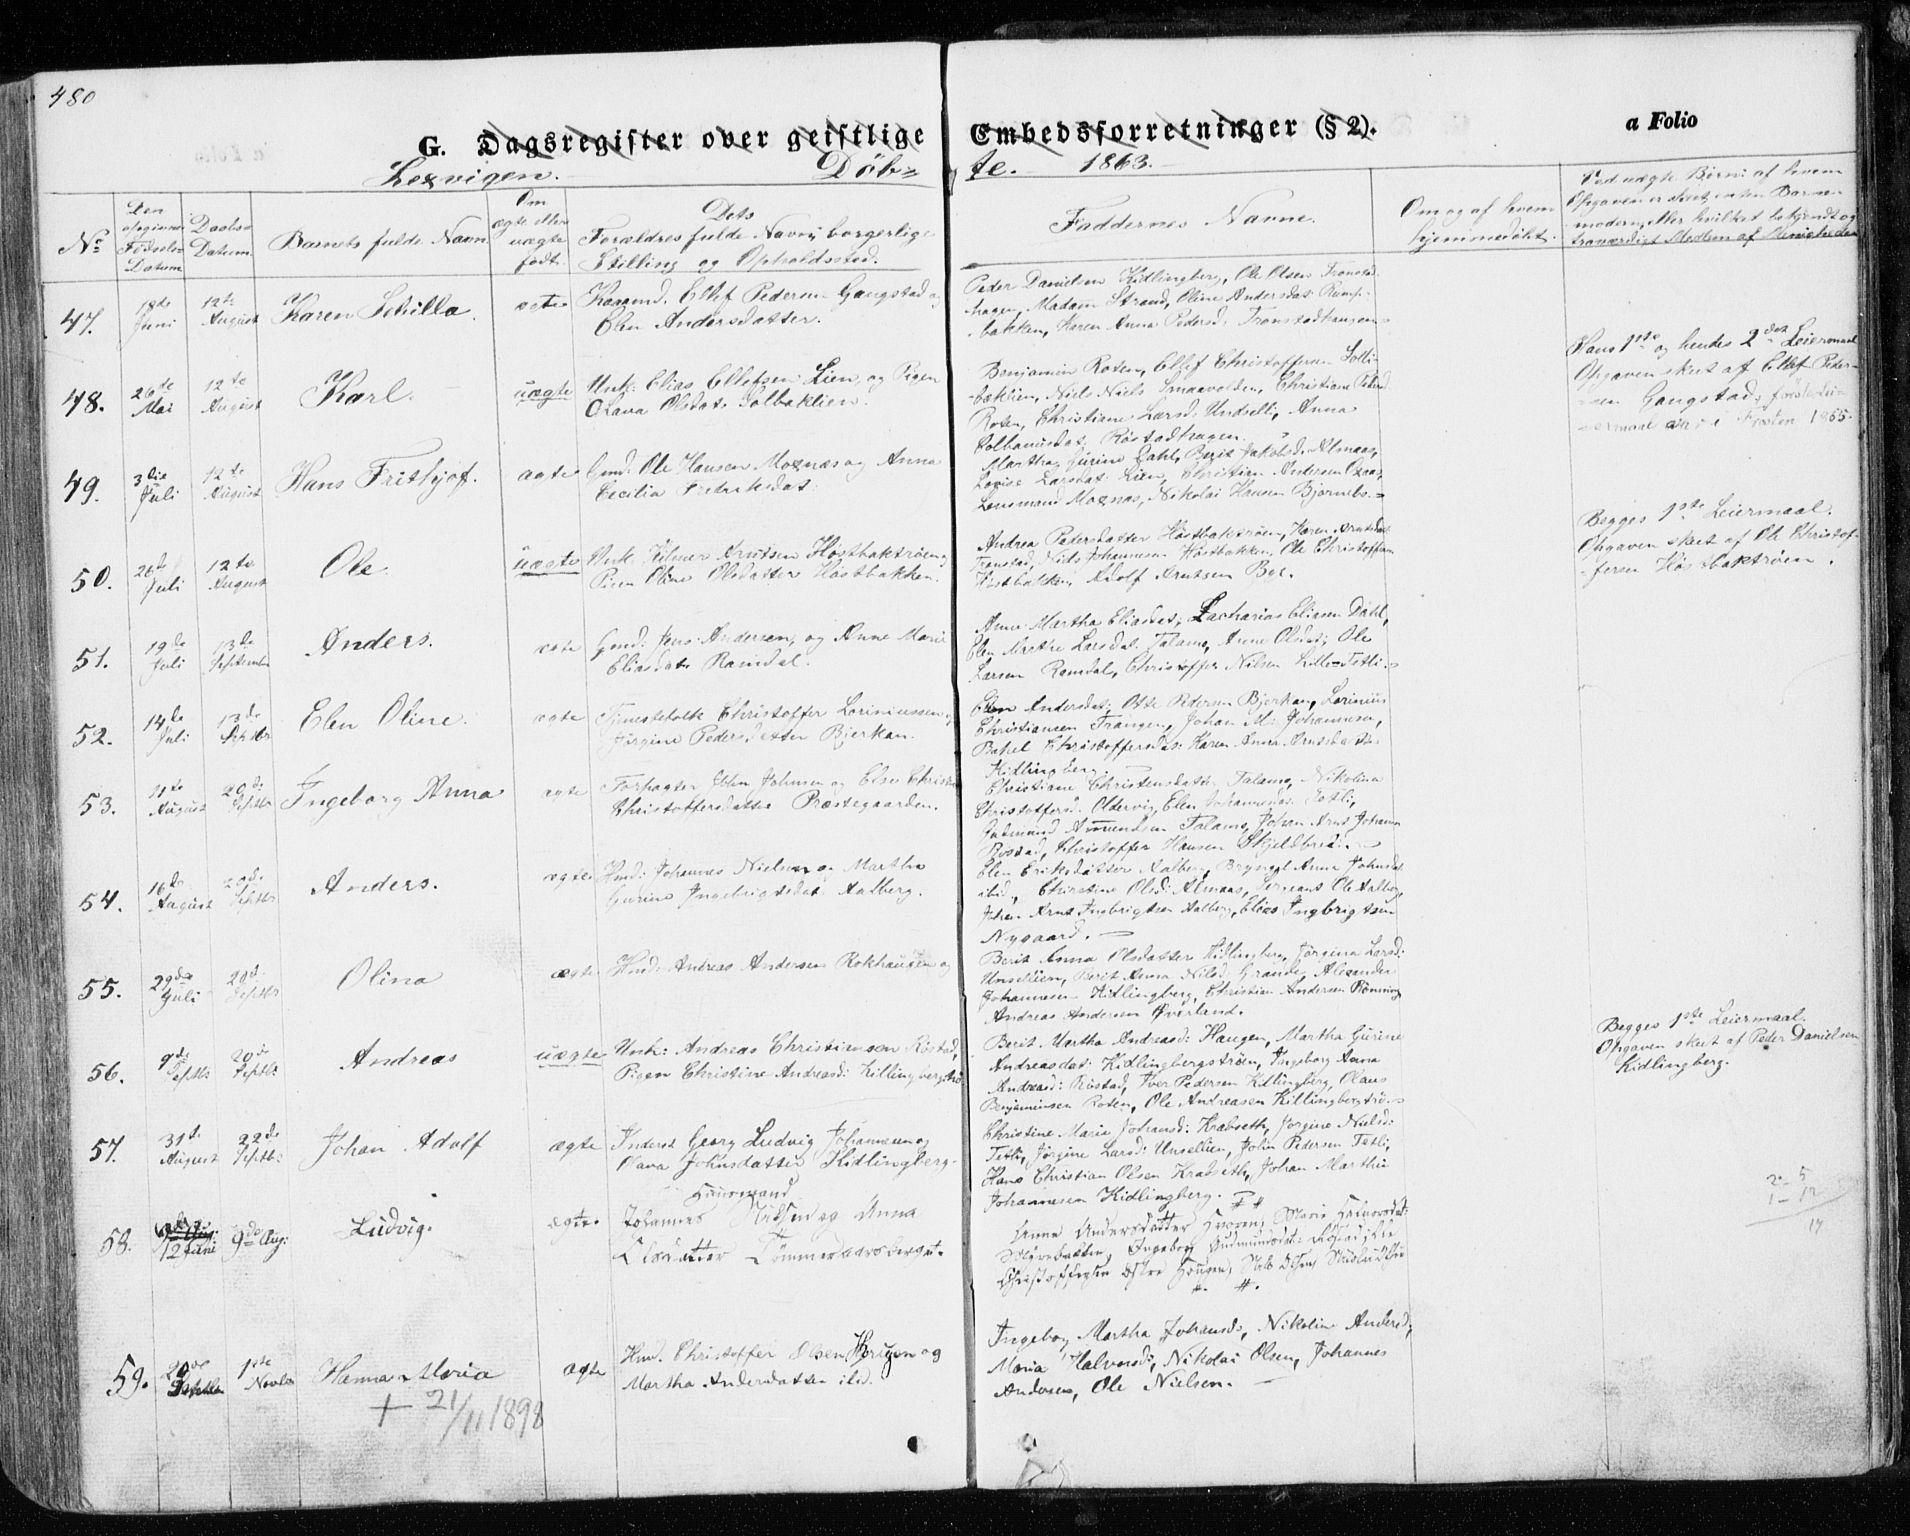 480
G. Dagsregister over geistlige Embedsforretninger (§ 2).
a Folio
Lexvigen. Döb= te. 1863.
No
Den opgivne Fødsels Datum
Daabs Datum.
Barnets fulde Navn
Om ægte eller uægte født.
Dets Forældres fulde Navn, borgerlige Stilling og Opholdssted.
Faddernes Navne.
Om og af hvem hjemmedøbt.
Ved uægte Børn: af hvem Opgaven er skeet, enten Barnemoderen, eller hvilket bekjendt og troværdigt Medlem af Menigheden
47. 18de Juni 12te August Karen Schilla. ægte
Ellef Pedersen Gangstad og
Elen Andersdatter.
Peder Danielsen Kidlingberg, Ole Olsen Tronstad-
hagen, Madam Strand, Oline Andersdat:
bakken, Karen Anna Pedersd: Tronstadhaugen
48. 26de Mai 12te August Karl. uægte
Unk: Elias Ellefsen Lien, og Pigen
Olava Olsdat: Solbaklien.
Benjamin Roten, Ellef Christoffersen Solli-
baklien, Niels Niels Smaavolden, Christiane
Roten, Christiane Larsd: Undselli, Anna
Rostadhagen.
Hans 1ste og hendes 2det Leiermaal
Opgaven skeet af Ellef Peder-
sen Gangstad, første Lei-
ermaal var i Frosten 1855.
49. 3die Juli 12te August Hans Frithjof. ægte
Gmd. Ole Hansen Moxnæs og Anna
Cecilia Fredriksdat:
Martha Jurine Dahl, Berit Jakobsd. Almaas,
Lovise Larsdat: Lien, Christian Andersen
Lensmand Moxnæs, Nikolai Hansen
50. 26de Juli 12te August Ole. uægte
Unk: Arntsen Hostbaktrøen og
Pigen Oline Olsdatter Høstbakken.
Andrea Pedersdatter Høstbaktrøen, Karen Arntsdat
Tronstad, Niels Johannesen Høstbakken, Ole Christoffersen
Høstbakken, Adolf Arntsen Bye.
Begges 1ste Leiermaal.
Opgaven skeet af Ole Christof-
fersen Høstbaktrøen.
51. 19de Juli 13de September Anders. ægte
Gmd: Jens Andersen, og Anne Marie
Eliasdat: Ramdal.
Anne Martha Eliasdat; Zacharias Eliasen Dahl,
Elen Martre Larsdat. Talamo, Anne Olsdat; Ole
Larsen Ramdal, Christoffer Nilsen Lille-Tetli.
52. 14de Juli 13de Septbr Elen Oline. ægte
Tjenestefolk Christoffer Lorinussen og
Jørgine Pedersdatter Bjerkan.
Elen Andersdat; Otte Pedersen Bjerkan, Lorinius
Christiansen Trangen, Johan M: Johannesen,
Rakel Christoffersdat: Karen Anna Arntsdatter
Kidlingberg.
53. 11te August 20de Septbr Ingeborg Anna ægte
Forpagter John Johnsen og Else
Christoffersdatter Præstegaarden.
Christiane Christensdatter Talamo, Nikolina
Christoffersd. Oldervig, Elen Johannesdat: Tetli,
Gudmund Amundsen Talamo, Johan Arnt Johannes
Rostad, Christoffer Hansen Skjeldbred.
54. 16de August 20de Septbr Anders. ægte
Hmd: Johannes Nielsen og Martha
Gurine Ingebrigtsdat Aalberg.
Elen Eriksdatter Aalberg, Anne Johnsdat
ibid., Christine Olsd: Almaas, Sergeant Ole Aalberg,
Johan Arnt Ingbrigtsen Aalberg, Elias Ingbrigtsen
Nygaard.
55. 29de Juli 20de Septbr Olina ægte
Hmd: Andreas Andersen Rokhaugen og
Berit Anna Olsdatter Kidlingberg, Jørgina Larsd:
Unsellien, Berit Anna Nilsd. Grande, Alexander
Johannesen Kidlingberg, Christian Andersen Rönning,
Andreas Andersen Øverland.
56. 9de Septbr 20de Septbr Andreas uægte
Unk: Andreas Christiansen Röstad,
Pigen Christine Andreasd: Killingbergtrö
Berit Martha Andreasd: Haugen, Martha Gurine
Andreasdat: Kidlingbergströen, Ingeborg Anna
Andreasd: Röstad, Iver Pedersen Killingberg, Olaus
Benjaminsen Roten, Ole Andreasen Killingbergtrö.
Begges 1ste Leiermaal.
Opgaven skeet af Peder Danielsen
Kidlingberg.
57. 31te August 22de Septbr Johan Adolf ægte
Inderst Georg Ludvig Johannesen og
Olava Johnsdatter Kidlingberg.
Christine Marie Johansd: Krabseth, Jörgine Nielsd:
Tetli, Jörgine Larsd: Unsellien, John Pedersen Tetli,
Hans Christian Olsen Krabseth, Johan Martin
Johannesen Kidlingberg.
2 - 5
1 - 12
17
58. 12 Juni 9de Aug: Ludvig. ægte.
Huusmand
Johannes Nielsen og Anna
Olsdatter
Anna Andersdatter Marie Halvorsdat:
Ingeborg Gudmundsdat: Röstad, Ole
Christoffersen Niels Olsen,
59. 20de Septbr 1ste Novbr Hanna Maria ægte
Hmd. Christoffer Olsen Haugen og
Martha Andersdatter ibid.
Ingeborg Martha Johansd:, Nikoline Andersd:,
Maria Halvorsd:, Nikolai Olsen, Johannes
Andersen, Ole Nielsen.
+ 21/11 1898